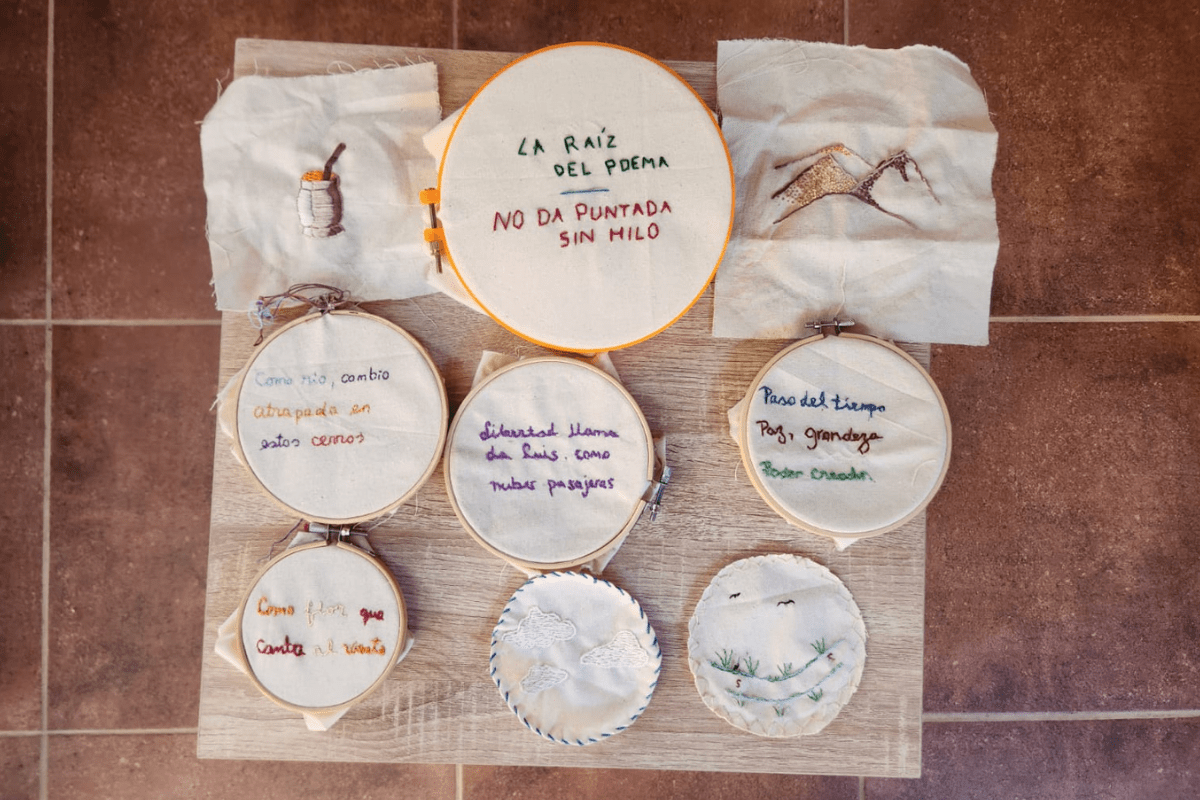 LA RAÍZ
DEL POEMA
NO DA PUNTADA
SIN HILO
Como río, cambio
atrapada en
estos cerros
Libertad llama
da luis, como
nubes pasajeras
Paso del tiempo
Paz, grandeza
Poder creador.
Como flor que
canta al viento